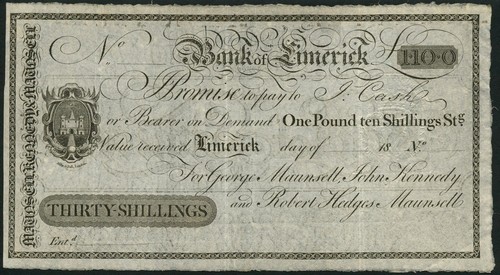 No Bank of Limerick £1·10·0
I Promise to pay to J. Cash
or Bearer on Demand One Pound ten Shillings Stg
Value received Limerick day of 18 No
For George Maunsell, John Kennedy
THIRTY-SHILLINGS and Robert Hedges Maunsell
Entd
MAUNSELL KENNEDY & MAUNSELL